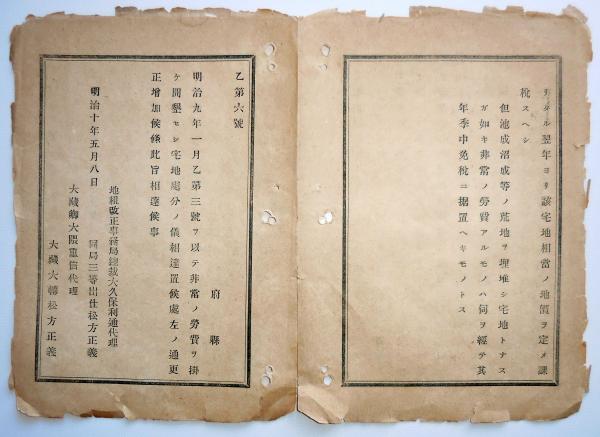 リタル翌年ヨリ該宅地相當ノ地價ヲ定メ課
税スヘシ
但池成沼成等ノ荒地ヲ埋堆シ宅地トナス
ガ如キ非常ノ勞費アルモノハ伺ヲ經テ其
年季中免税ニ据置ヘキモノトス
乙第六號
府縣
明治九年一月乙第三號ヲ以テ非常ノ勞費ヲ掛
ケ開墾セシ宅地處分ノ儀相達置候處左ノ通更
正增加候條此旨相達候事
地租改正事務局總裁大久保利通代理
明治十年五月八日　同局三等出仕松方正義
大藏卿大隈重信代理
大藏大輔松方正義